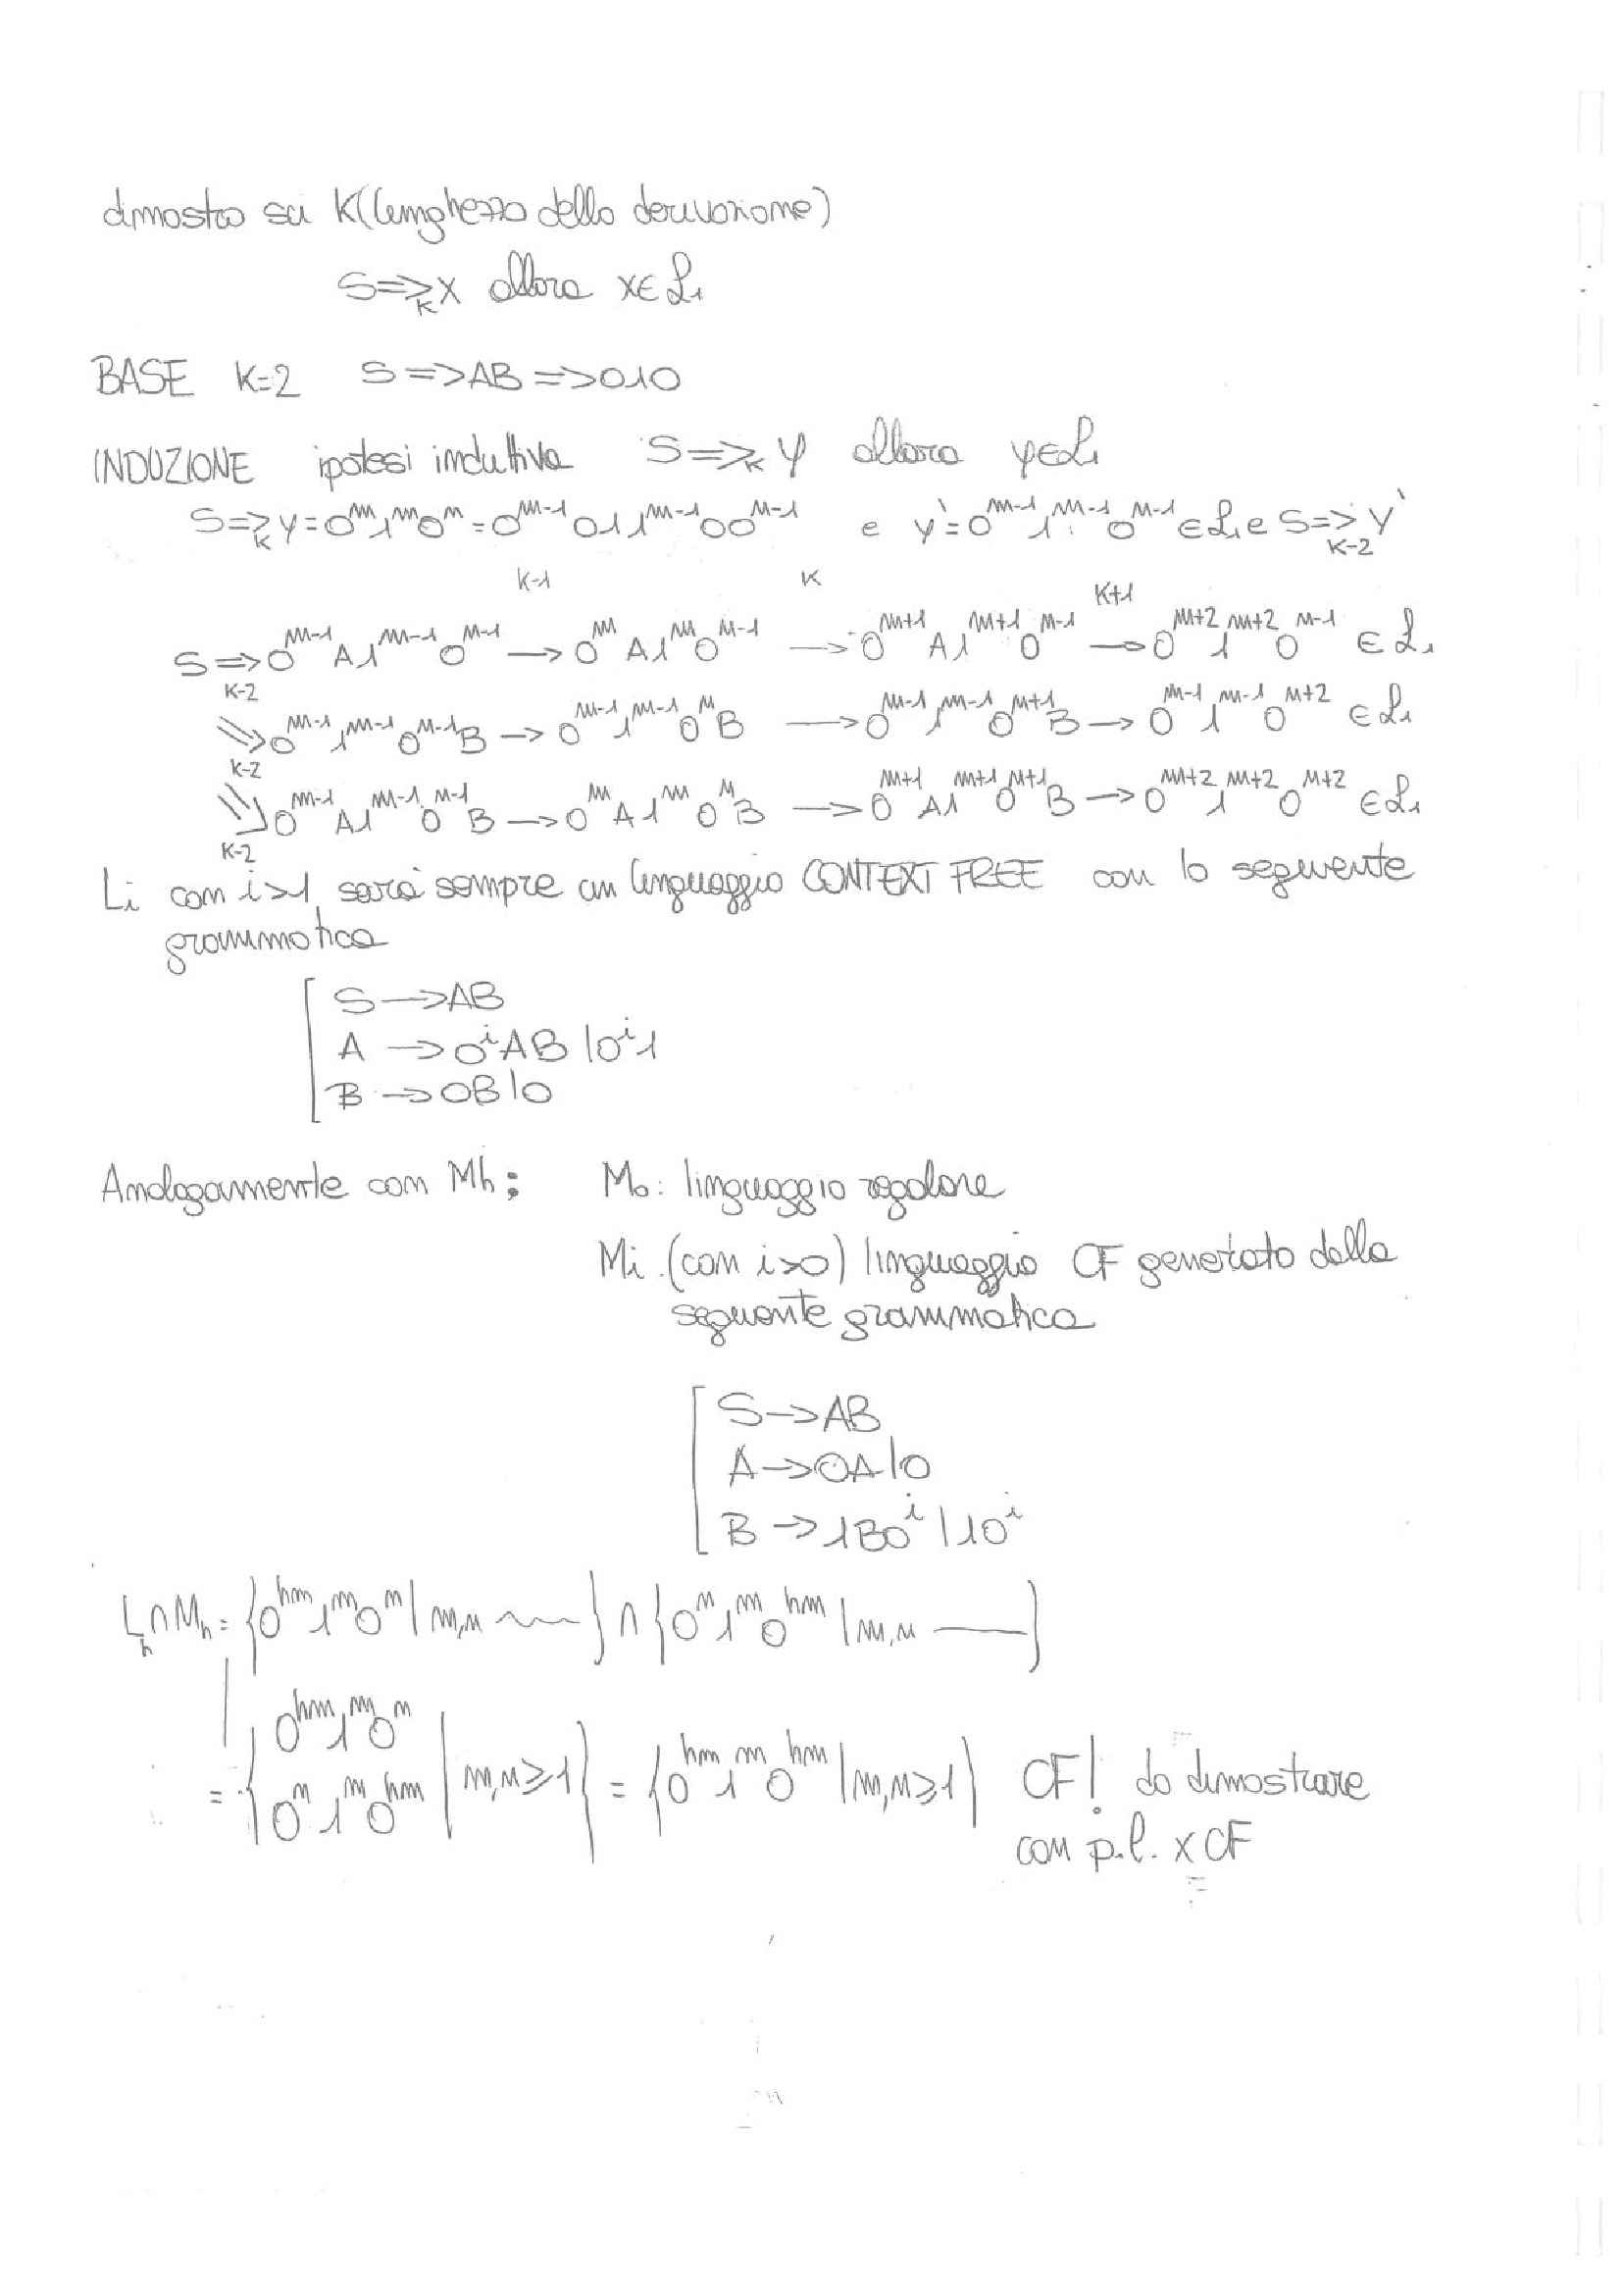 dimostro su K (lunghezza della derivazione)
S =>_K X allora x ∈ L₁
BASE K=2 S => AB => 010
INDUZIONE ipotesi induttiva S =>_K y allora y ∈ L₁
S =>_K y = 0^m 1^m 0^n = 0^{m-1} 0 1 1^{m-1} 0 0^{n-1} e y' = 0^{m-1} 1^{m-1} 0^{n-1} ∈ L₁ e S =>_{K-2} y'
K-1 K K+1
S =>_{K-2} 0^{m-1} A 1^{m-1} 0^{n-1} -> 0^m A 1^m 0^{n-1} -> 0^{m+1} A 1^{m+1} 0^{n-1} -> 0^{m+2} 1^{m+2} 0^{n-1} ∈ L₁
=>_{K-2} 0^{m-1} 1^{m-1} 0^{n-1} B -> 0^{m-1} 1^{m-1} 0^n B -> 0^{m-1} 1^{m-1} 0^{n+1} B -> 0^{m-1} 1^{m-1} 0^{n+2} ∈ L₁
=>_{K-2} 0^{m-1} A 1^{m-1} 0^{n-1} B -> 0^m A 1^m 0^n B -> 0^{m+1} A 1^{m+1} 0^{n+1} B -> 0^{m+2} 1^{m+2} 0^{n+2} ∈ L₁
Li con i>1 sarà sempre un linguaggio CONTEXT FREE con la seguente
grammatica
S -> AB
A -> 0^i AB | 0^i 1
B -> 0B | 0
Analogamente con Mh: M₀: linguaggio regolare
Mi (con i>0) linguaggio CF generato dalla
seguente grammatica
S -> AB
A -> 0A | 0
B -> 1B0^i | 10^i
L_h ∩ M_h = {0^{hm} 1^m 0^n | m,n} ∩ {0^n 1^m 0^{hm} | m,n}
0^{hm} 1^m 0^n
= { 0^n 1^m 0^{hm} | m,n ≥ 1} = {0^{hm} 1^m 0^{hm} | m,n ≥ 1} CF! da dimostrare
con p.l. x CF